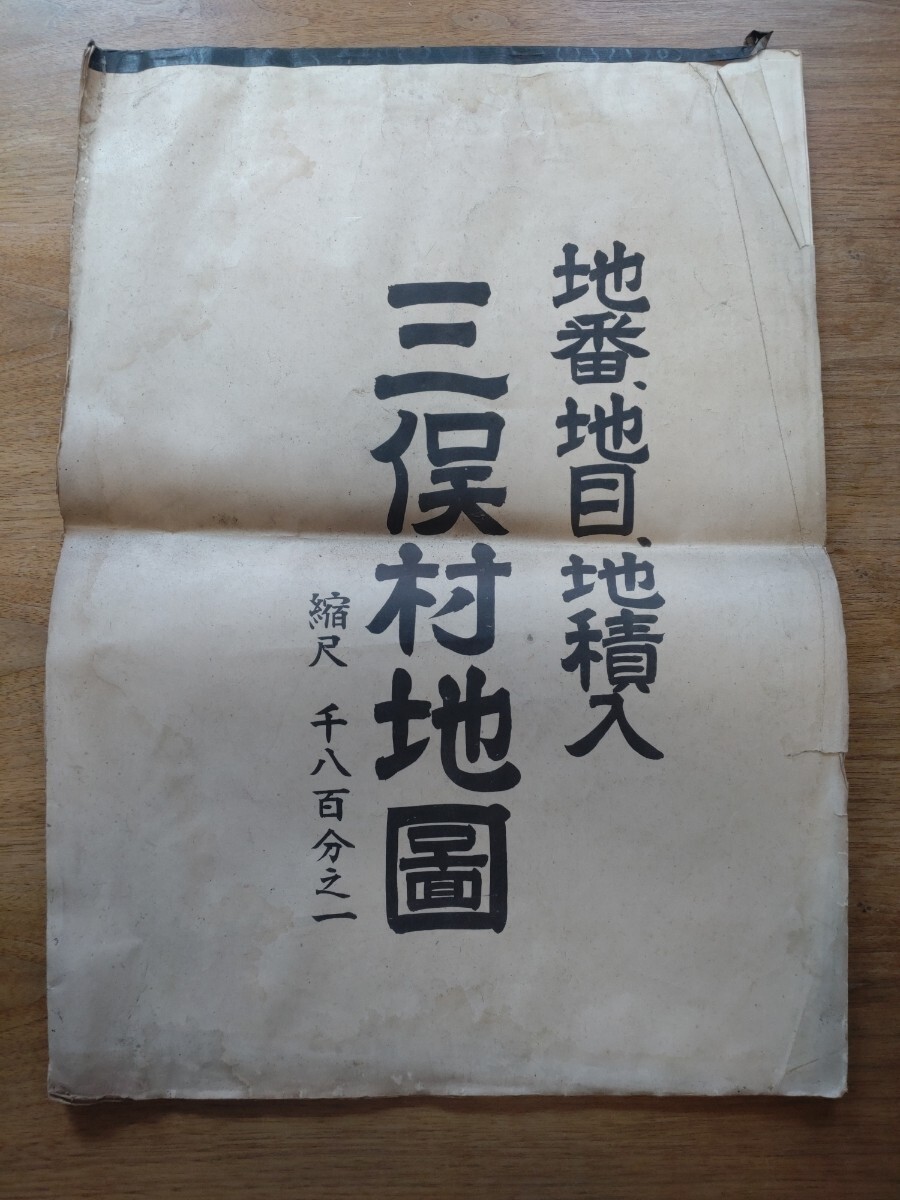 地番、地目、地積入
三俣村地圖
縮尺 千八百分之一